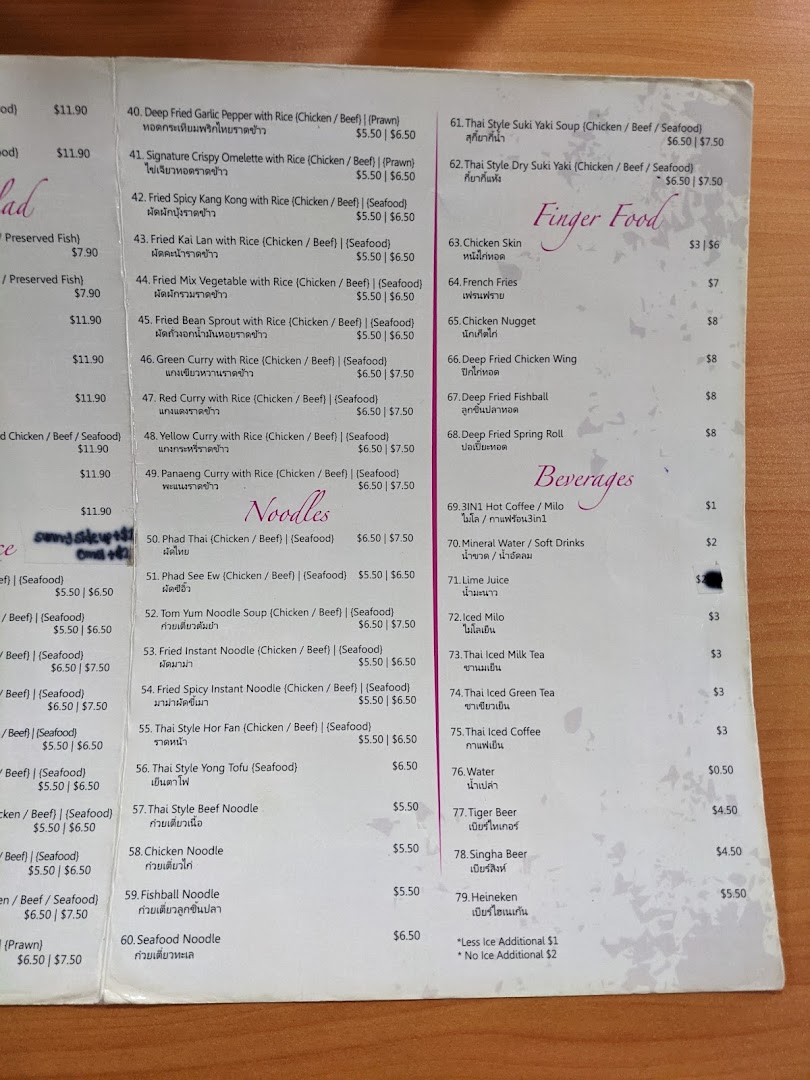 od} $11.90
ood} $11.90
lad
/ Preserved Fish}
$7.90
/ Preserved Fish}
$7.90
$11.90
$11.90
$11.90
d Chicken / Beef / Seafood}
$11.90
$11.90
$11.90
ce
sunny side up +$1
ef} | {Seafood}
$5.50 | $6.50
/ Beef} | {Seafood}
$5.50 | $6.50
/ Beef} | {Seafood}
$6.50 | $7.50
/ Beef} | {Seafood}
$6.50 | $7.50
/ Beef} | {Seafood}
$5.50 | $6.50
/ Beef} | {Seafood}
$5.50 | $6.50
cken / Beef} | {Seafood}
$5.50 | $6.50
/ Beef} | {Seafood}
$5.50 | $6.50
en / Beef / Seafood}
$6.50 | $7.50
| {Prawn}
$6.50 | $7.50
40. Deep Fried Garlic Pepper with Rice {Chicken / Beef} | {Prawn}
ทอดกระเทียมพริกไทยราดข้าว $5.50 | $6.50
41. Signature Crispy Omelette with Rice {Chicken / Beef} | {Prawn}
ไข่เจียวทอดราดข้าว $5.50 | $6.50
42. Fried Spicy Kang Kong with Rice {Chicken / Beef} | {Seafood}
ผัดผักบุ้งราดข้าว $5.50 | $6.50
43. Fried Kai Lan with Rice {Chicken / Beef} | {Seafood}
ผัดคะน้าราดข้าว $5.50 | $6.50
44. Fried Mix Vegetable with Rice {Chicken / Beef} | {Seafood}
ผัดผักรวมราดข้าว $5.50 | $6.50
45. Fried Bean Sprout with Rice {Chicken / Beef} | {Seafood}
ผัดถั่วงอกน้ำมันหอยราดข้าว $5.50 | $6.50
46. Green Curry with Rice {Chicken / Beef} | {Seafood}
แกงเขียวหวานราดข้าว $6.50 | $7.50
47. Red Curry with Rice {Chicken / Beef} | {Seafood}
แกงแดงราดข้าว $6.50 | $7.50
48. Yellow Curry with Rice {Chicken / Beef} | {Seafood}
แกงกระหรี่ราดข้าว $6.50 | $7.50
49. Panaeng Curry with Rice {Chicken / Beef} | {Seafood}
พะแนงราดข้าว $6.50 | $7.50
Noodles
50. Phad Thai {Chicken / Beef} | {Seafood} $6.50 | $7.50
ผัดไทย
51. Phad See Ew {Chicken / Beef} | {Seafood} $5.50 | $6.50
ผัดซีอิ๊ว
52. Tom Yum Noodle Soup {Chicken / Beef} | {Seafood}
ก๋วยเตี๋ยวต้มยำ $6.50 | $7.50
53. Fried Instant Noodle {Chicken / Beef} | {Seafood}
ผัดมาม่า $5.50 | $6.50
54. Fried Spicy Instant Noodle {Chicken / Beef} | {Seafood}
มาม่าผัดขี้เมา $5.50 | $6.50
55. Thai Style Hor Fan {Chicken / Beef} | {Seafood}
ราดหน้า $5.50 | $6.50
56. Thai Style Yong Tofu {Seafood} $6.50
เย็นตาโฟ
57. Thai Style Beef Noodle $5.50
ก๋วยเตี๋ยวเนื้อ
58. Chicken Noodle $5.50
ก๋วยเตี๋ยวไก่
59. Fishball Noodle $5.50
ก๋วยเตี๋ยวลูกชิ้นปลา
60. Seafood Noodle $6.50
ก๋วยเตี๋ยวทะเล
61. Thai Style Suki Yaki Soup {Chicken / Beef / Seafood}
สุกี้ยากี้น้ำ $6.50 | $7.50
62. Thai Style Dry Suki Yaki {Chicken / Beef / Seafood}
กี้ยากี้แห้ง $6.50 | $7.50
Finger Food
63. Chicken Skin $3 | $6
หนังไก่ทอด
64. French Fries $7
เฟรนฟราย
65. Chicken Nugget $8
นักเก็ตไก่
66. Deep Fried Chicken Wing $8
ปีกไก่ทอด
67. Deep Fried Fishball $8
ลูกชิ้นปลาทอด
68. Deep Fried Spring Roll $8
ปอเปี๊ยะทอด
Beverages
69. 3IN1 Hot Coffee / Milo $1
ไมโล / กาแฟร้อน3in1
70. Mineral Water / Soft Drinks $2
น้ำขวด / น้ำอัดลม
71. Lime Juice $2
น้ำมะนาว
72. Iced Milo $3
ไมโลเย็น
73. Thai Iced Milk Tea $3
ชานมเย็น
74. Thai Iced Green Tea $3
ชาเขียวเย็น
75. Thai Iced Coffee $3
กาแฟเย็น
76. Water $0.50
น้ำเปล่า
77. Tiger Beer $4.50
เบียร์ไทเกอร์
78. Singha Beer $4.50
เบียร์สิงห์
79. Heineken $5.50
เบียร์ไฮเนเก้น
*Less Ice Additional $1
* No Ice Additional $2